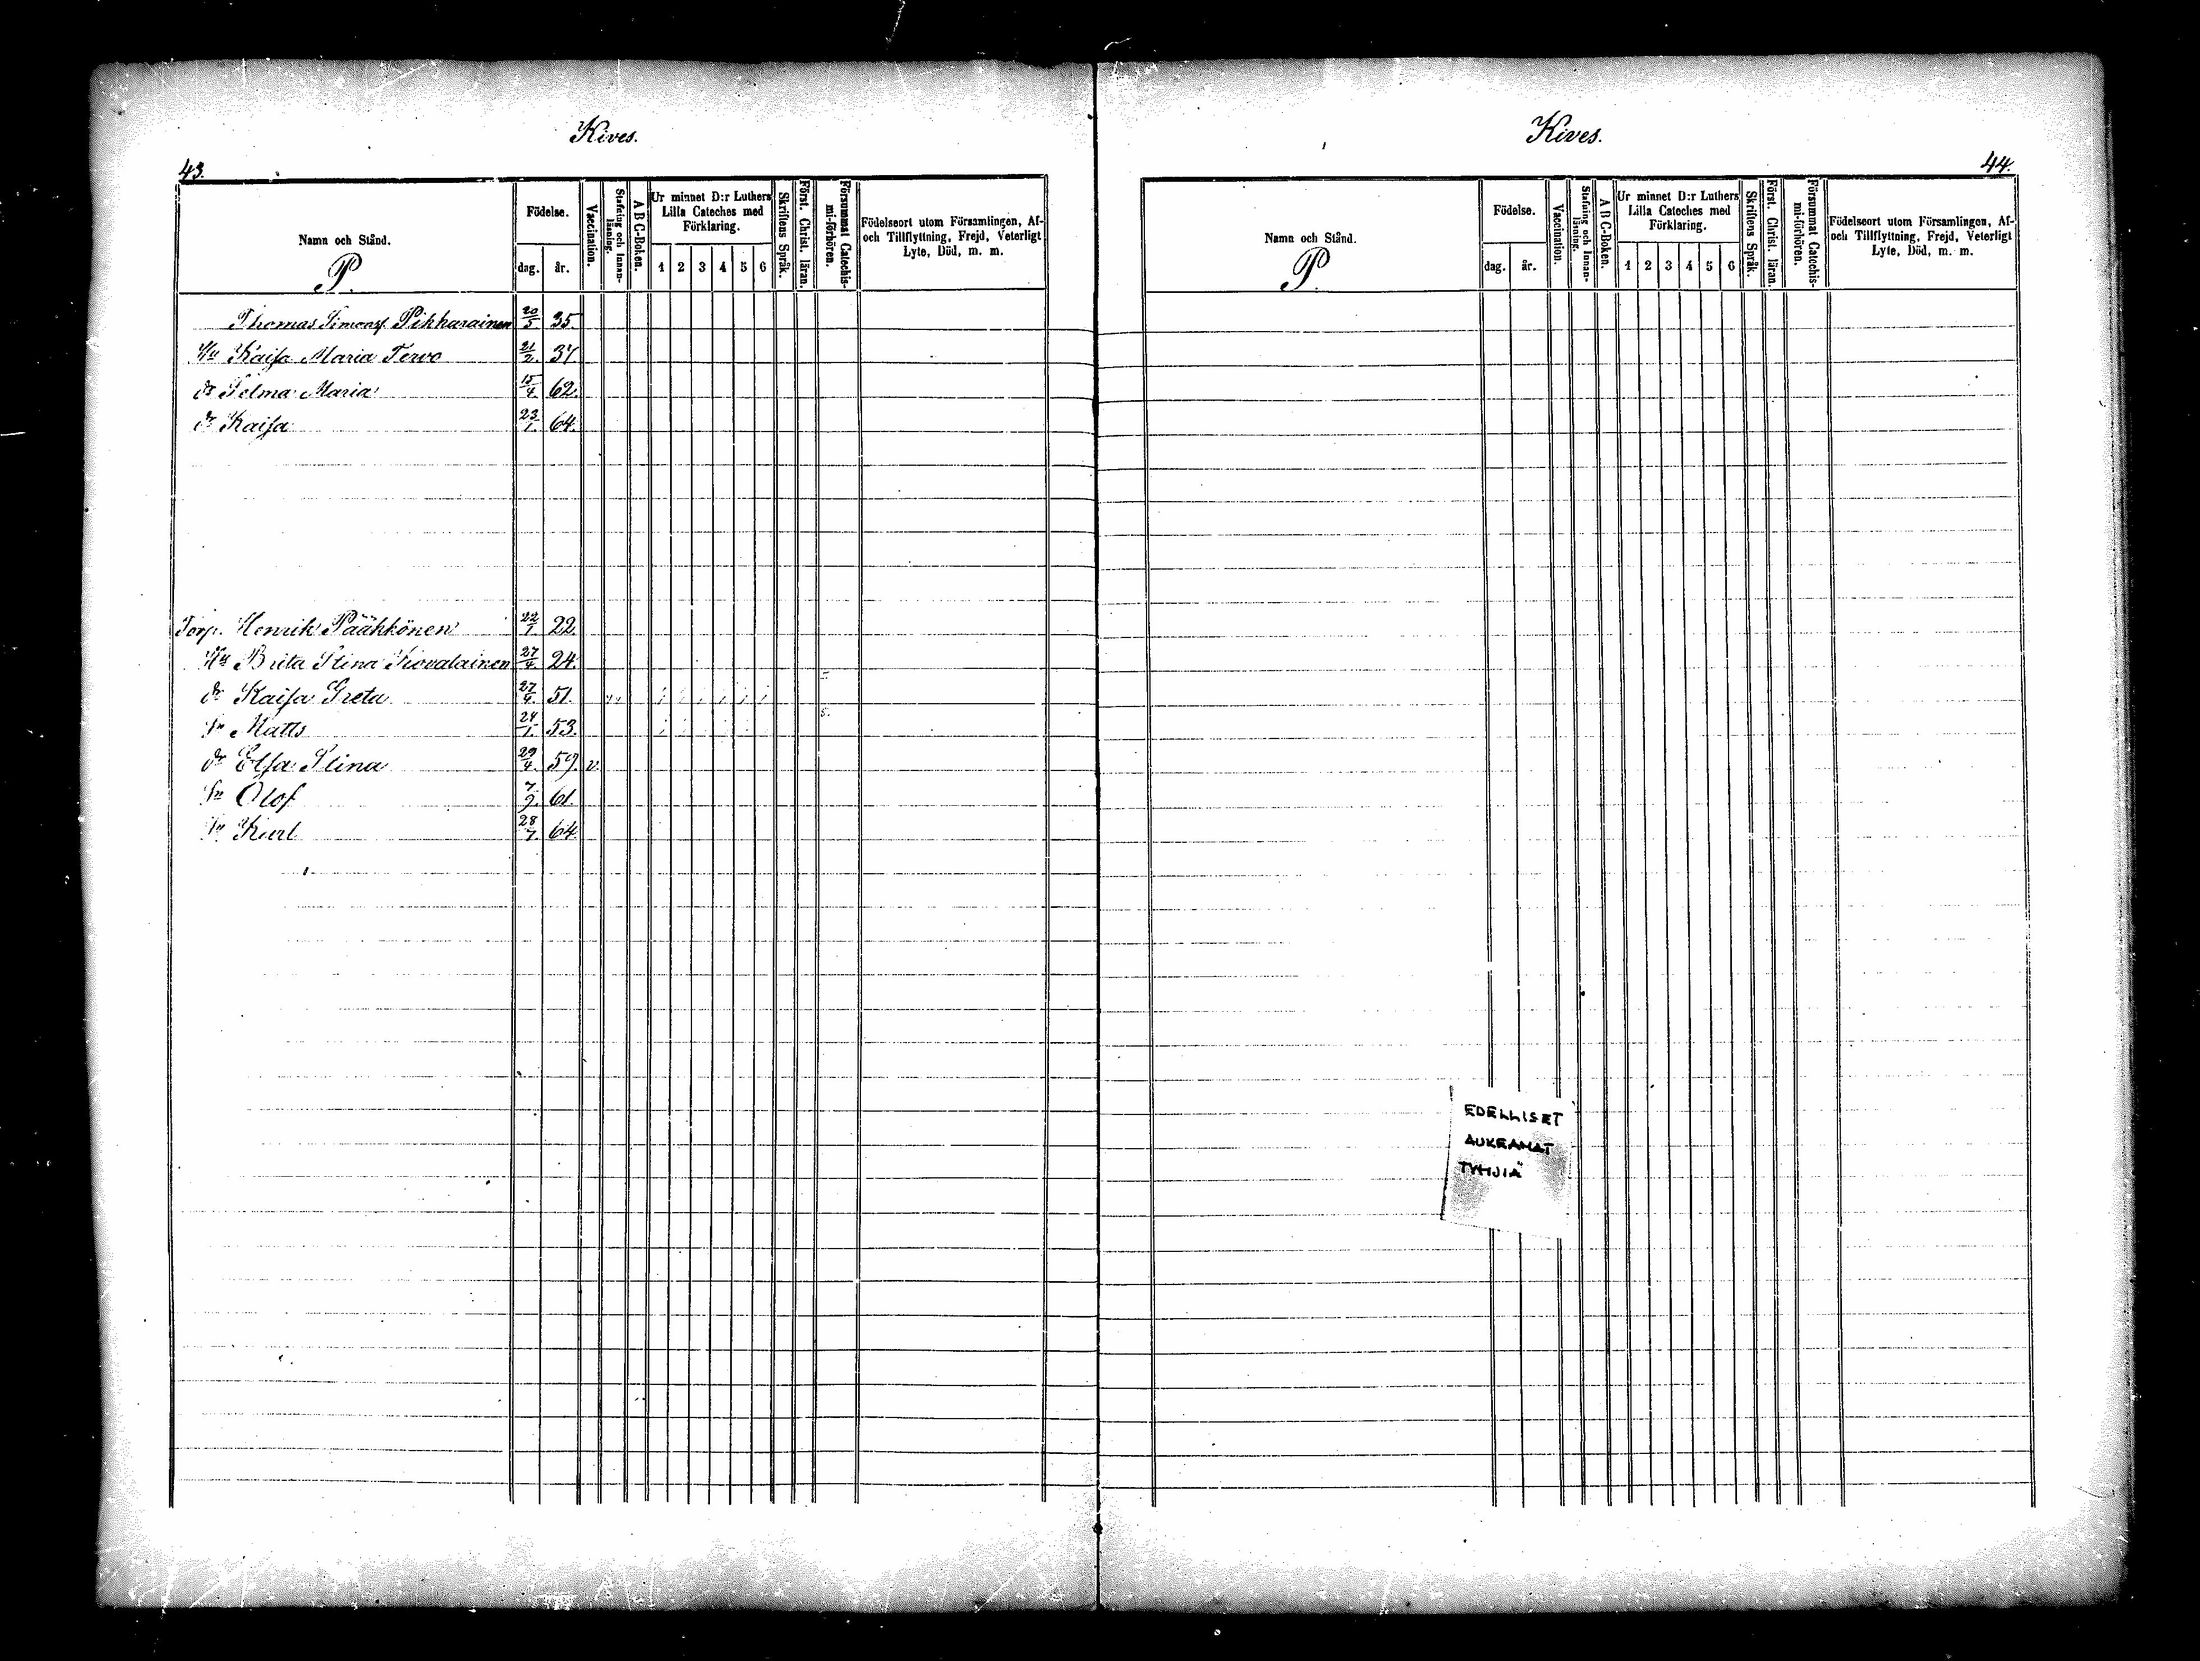 Kives.
43.
Namn och Stånd.
P.
Födelse.
dag. år.
Vaccination.
Stafning och Innan-läsning.
A B C-Boken.
Ur minnet D:r Luthers
Lilla Cateches med
Förklaring.
1 2 3 4 5 6
Skriftens Språk.
Först. Christ. läran.
Försummat Catechis-mi-förhören.
Födelseort utom Församlingen, Af-
och Tillflyttning, Frejd, Veterligt
Lyte, Död, m. m.
Thomas Simonsf Pikkarainen 20/5 35.
Hu Kaisa Maria Tervo 21/2. 37.
dr Selma Maria 15/4 62.
dr Kaisa 23/1. 64.
Torp. Henrik Pääkkönen 22/1. 22.
Hu Brita Stina 27/4. 24.
dr Kaisa Greta 27/4. 51.
Sn Matts 24/1. 53.
dr Elsa Stina 29/4. 59. v.
Sn Olof 7/9. 61.
Sn Karl 28/7. 64.
Kives.
44.
Namn och Stånd.
P.
Födelse.
dag. år.
Vaccination.
Stafning och Innan-läsning.
A B C-Boken.
Ur minnet D:r Luthers
Lilla Cateches med
Förklaring.
1 2 3 4 5 6
Skriftens Språk.
Först. Christ. läran.
Försummat Catechis-mi-förhören.
Födelseort utom Församlingen, Af-
och Tillflyttning, Frejd, Veterligt
Lyte, Död, m. m.
EDELLISET
AUKEAMAT
TYHJIÄ